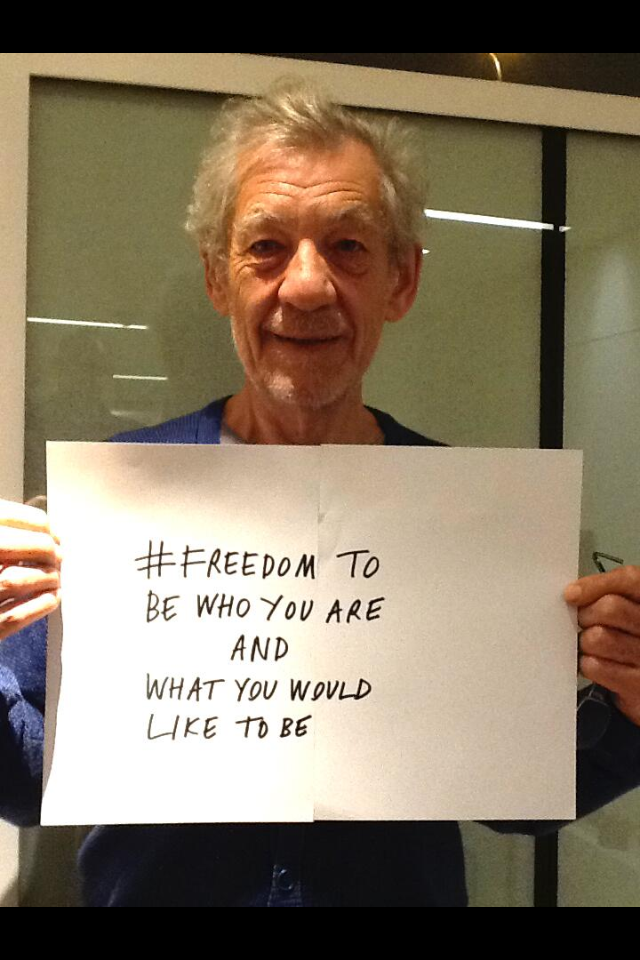 #FREEDOM TO
BE WHO YOU ARE
AND
WHAT YOU WOULD
LIKE TO BE